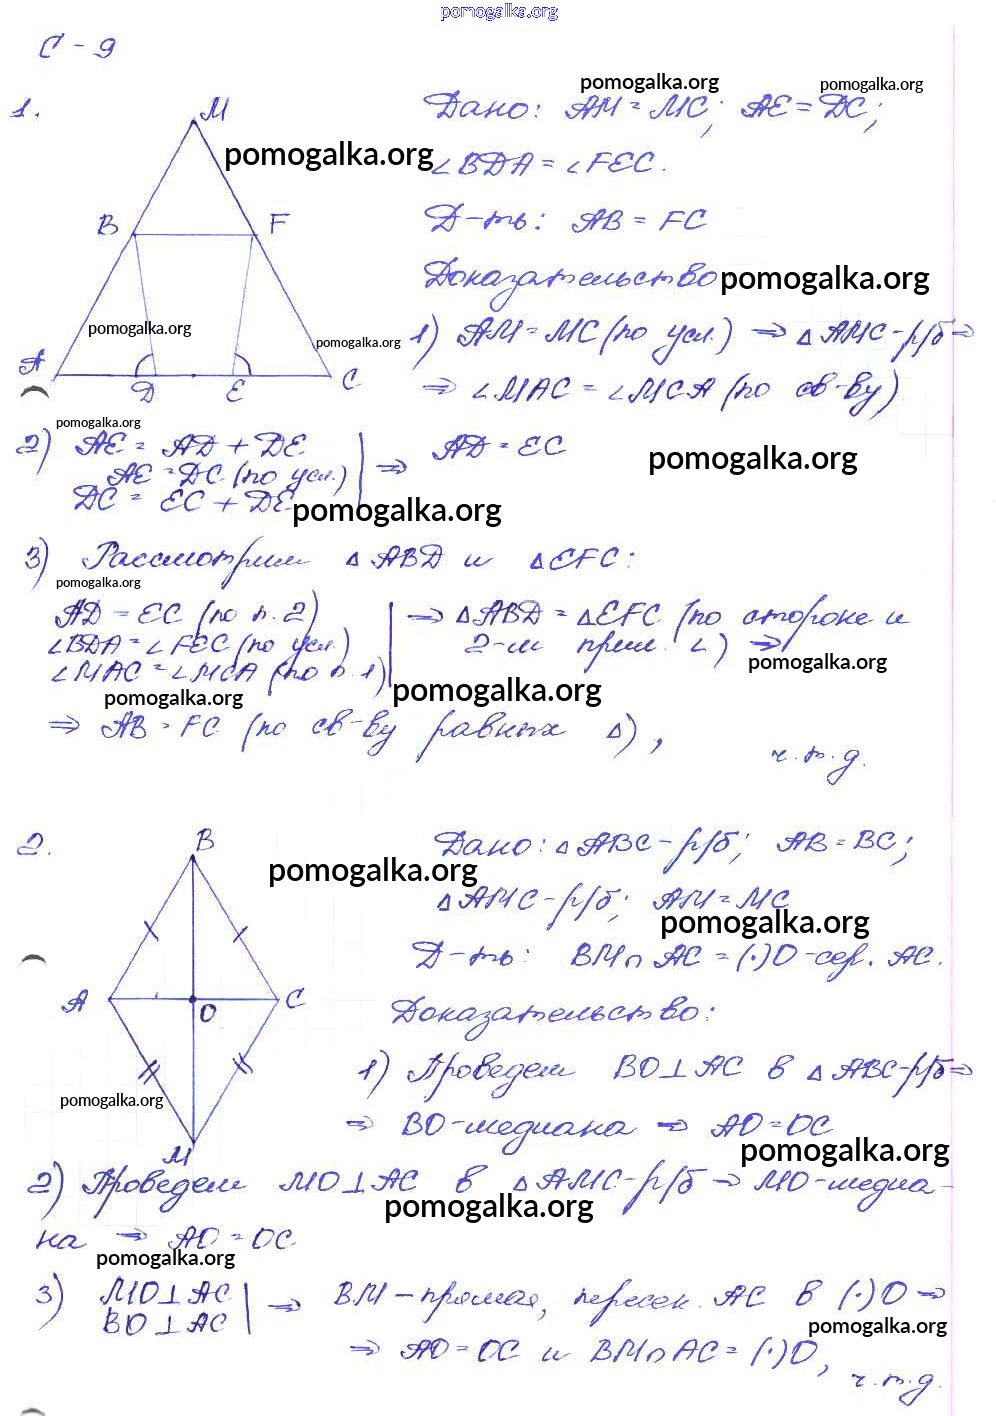 pomogalka.org
С - 9
pomogalka.org
pomogalka.org
1.
M
Дано: AM = MC; AE = DC;
pomogalka.org
∠BDA = ∠FEC.
B
F
Д-ть: AB = FC
Доказательство
pomogalka.org
pomogalka.org
pomogalka.org
1) AM = MC (по усл.) ⇒ △ AMC - р/б ⇒
A
D
E
C
⇒ ∠MAC = ∠MCA (по св-ву)
pomogalka.org
2) AE = AD + DE
AE = DC (по усл.)
DC = EC + DE
⇒ AD = EC
pomogalka.org
pomogalka.org
3) Рассмотрим △ ABD и △EFC:
pomogalka.org
AD = EC (по п. 2)
∠BDA = ∠FEC (по усл.)
∠MAC = ∠MCA (по п. 1)
⇒ △ABD = △EFC (по стороне и
2-м прил. ∠) ⇒
pomogalka.org
pomogalka.org
pomogalka.org
⇒ AB = FC (по св-ву равных △),
ч.т.д.
2.
B
Дано: △ ABC - р/б; AB = BC;
pomogalka.org
△AMC - р/б; AM = MC
pomogalka.org
Д-ть: BM ∩ AC = (·)O - сер. AC.
A
O
C
Доказательство:
1) Проведем BO⊥AC в △ ABC-р/б ⇒
pomogalka.org
⇒ BO-медиана ⇒ AO = OC
M
pomogalka.org
2) Проведем MO⊥AC в △AMC-р/б ⇒ MO-медиа-
pomogalka.org
на ⇒ AO = OC
pomogalka.org
3) MO⊥AC
BO⊥AC
⇒ BM - прямая, пересек. AC в (·)O ⇒
pomogalka.org
⇒ AO = OC и BM∩AC = (·)O,
ч.т.д.